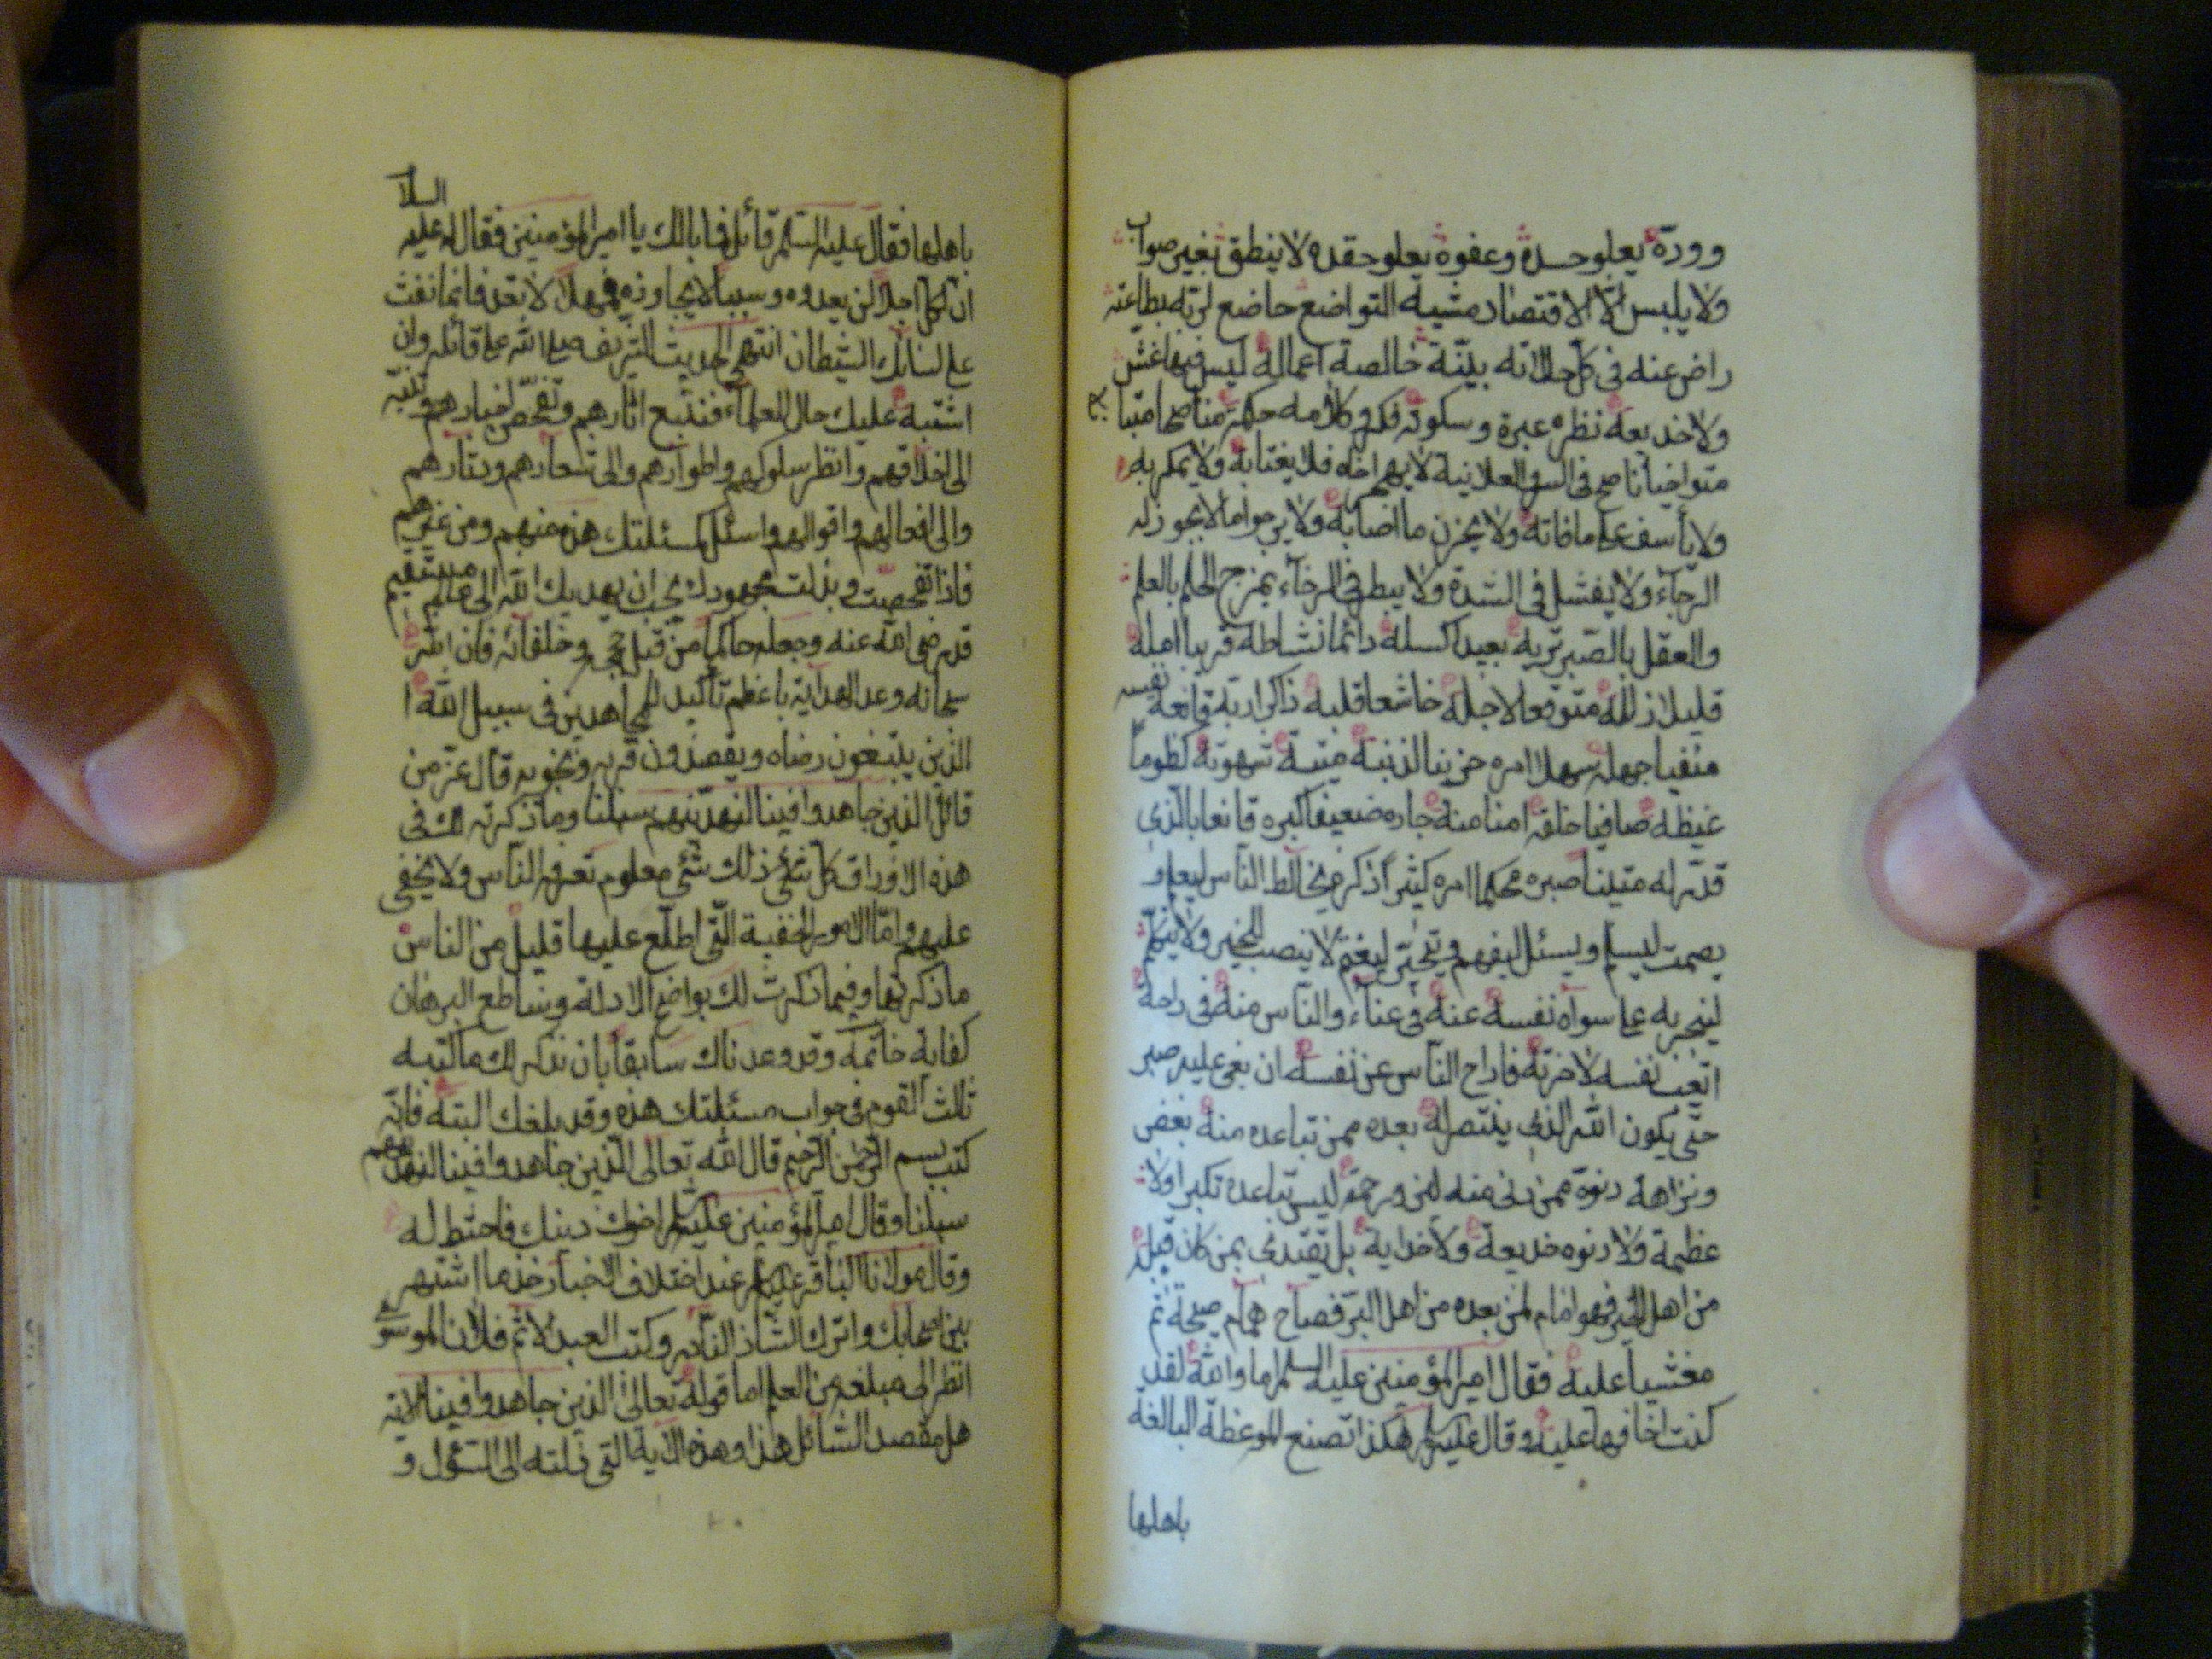 وودّه يعلو حسده وعفوه يعلو حقده لا ينطق بغير صواب
ولا يلبس الّا الاقتصاد مشيه التواضع خاضع لربّه بطاعته
راض عنه فى كلّ حالاته بنيّة خالصة اعماله ليس فيها غش
ولا خديعة نظره عبرة وسكوته فكر وكلامه حكمة مناصحا متبا
متواخيا ناصح فى السر والعلانية لا يهجر اخاه فلا يغتابه ولا يمكر به
ولا يأسف على ما فاته ولا يحزن ما اصابه ولا يرجوا ما لا يجوز له
الرجاء ولا يفشل فى الشدة ولا يبطر فى الرخاء يمزج الحلم بالعلم
والعقل بالصبر تريه بعيدا كسله دائما نشاطه قريبا امله
قليلا زلله متوقعا لاجله خاشعا قلبه ذاكرا ربّه قانعة نفسه
منفيا جهله سهلا امره حزينا لذنبه ميتة شهوته كظوما
غيظه صافيا خلقه امنا منه جاره ضعيفا كبره قانعا بالذى
قدّر له متينا صبره محكما امره كثيرا ذكره يخالط الناس ليعلم و
يصمت ليسلم ويسئل ليفهم ويتجر ليغنم لا ينصب للخير ولا يتكلم
ليتجربه على سواه نفسه عنه فى عناء والناس منه فى راحة
اتعب نفسه لاخرته فاراح الناس عن نفسه ان بغى عليه صبر
حتى يكون الله الذى ينتصر له بعده ممن تباعده منه بغض
ونزاهة دنوه ممن دنى منه لين ورحمة ليس تباعده تكبرا ولا
عظمة ولا دنوه خديعة ولا خلابة بل يقتدى بمن كان قبله
من اهل الخير فهو امام لمن بعده من اهل البرّ فصاح همام صيحة ثم
مغشيا عليه فقال امير المؤمنين عليه السلم اما والله لقد
كنت اخافها عليه وقال عليه السلم هكذا تصنع الموعظة البالغة
باهلها
السلا
باهلها فقال عليه السلم قائل فما بالك يا امير المؤمنين فقال له عليه
ان لكل اجلا لن يعدوه وسببا لا يجاوزه فمهلا لا تعد فانما نفث
على لسانك الشيطان انتهى الحديث الشريف صلى الله على قائله وان
اشتبه عليك حال العلماء فتتبع اثارهم وتفحص اخبارهم
الى اخلاقهم وانظر سلوكهم واطوارهم والى شعارهم ودثارهم
والى افعالهم واقوالهم واسئل مسئلتك هذه منهم ومن غيرهم
فاذا تفحصت وبذلت مجهودك يجب ان يهديك الله الى عالم مستقيم
قد رضى الله عنه وجعله حاكما من قبل حججه وخلفائه فان الله
سبحانه وعد الهداية باعظم تأكيد للمجاهدين فى سبيل الله ا
الذين يبتغون رضاه ويقصدون قربه ونجويه قال عز من
قائل الذين جاهدوا فينا لنهدينهم سبلنا وما ذكرته لك فى
هذه الاوراق كل شئ ذلك شئ معلوم تعرفه الناس ولا يخفى
عليهم واما الامور الخفية التى اطلع عليها قليل من الناس
ما ذكرتها وفيما ذكرت لك بواضح الادلة وساطع البرهان
كفاية خاتمة وقد وعدناك سابقا بان نذكر لك ما كتبه
ثالث القوم فى جواب مسئلتك هذه وقد بلغك البته فانه
كتب بسم الله الرحمن الرحيم قال الله تعالى الذين جاهدوا فينا لنهدينهم
سبلنا وقال امير المؤمنين عليه السلم اخوك دينك فاحتط له
وقال مولانا الباقر عليه السلم عند اختلاف الاخبار خذ ما اشتهر
بين اصحابك واترك الشاذ النادر وكتب العبد الاثم فلان الموسوى
انظر الى مبلغه من العلم اما قوله تعالى الذين جاهدوا فينا الاية
هل مقصد السائل هذا وهذه الاية التى دلته الى السؤل و